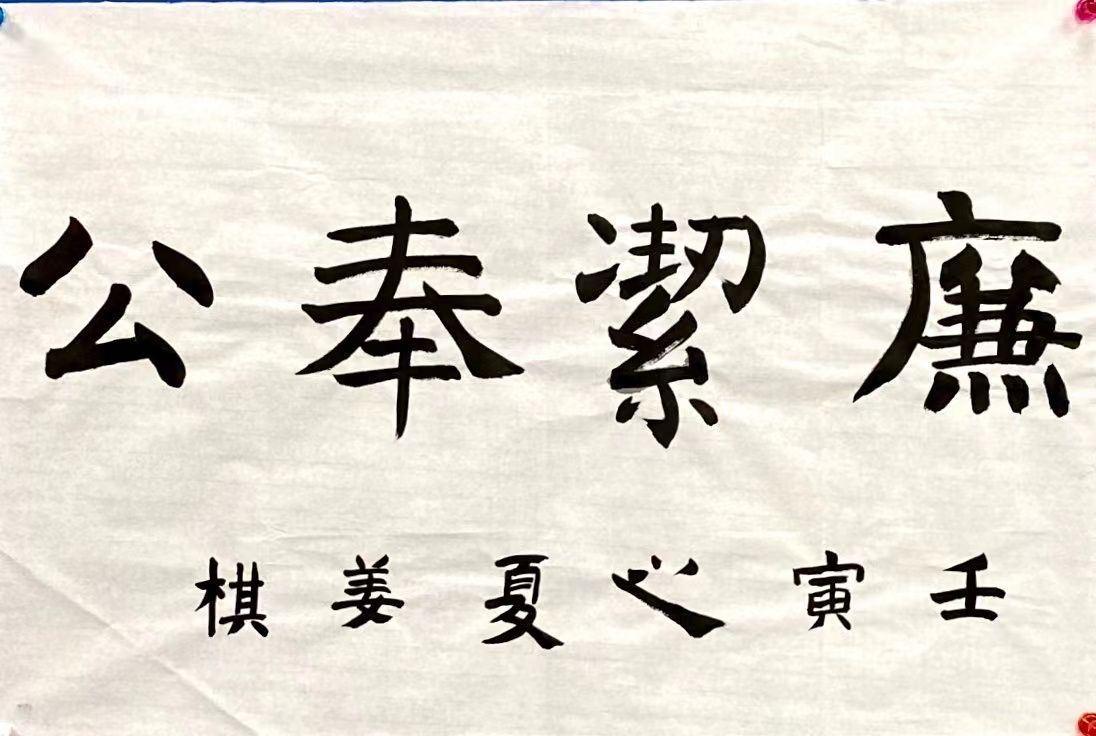 廉潔奉公
壬寅之夏姜棋